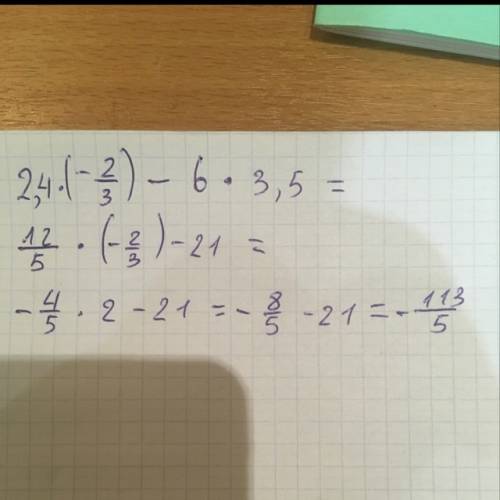 2,4·(-2/3) - 6 · 3,5 =
12/5 · (-2/3) - 21 =
-4/5 · 2 - 21 = -8/5 - 21 = -113/5